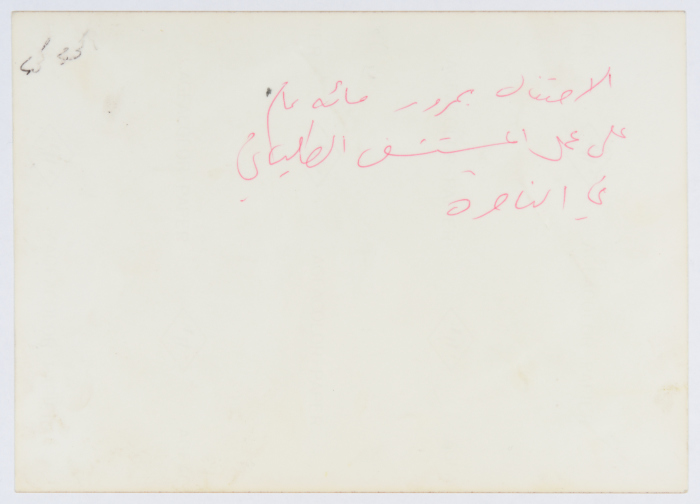 الاحتفال بمرور مائه عام
على عمل المستشفى الطلياني
في الناصرة